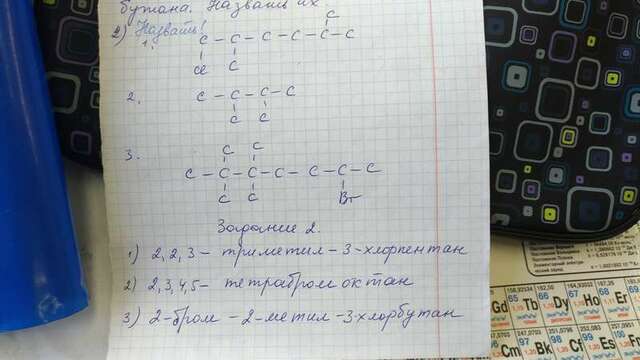 бутана. Назвать их
2) Назвать!
C
1. C – C – C – C – C – C
Cl C
2. C – C – C – C
C C
3. C C
C – C – C – C – C – C – C
C C Br
Задание 2.
1) 2,2,3 – триметил – 3 – хлорпентан
2) 2,3,4,5 – тетрабромоктан
3) 2-бром – 2-метил – 3-хлорбутан
Gd 65 Tb 66 Dy 67 Ho 68 Er